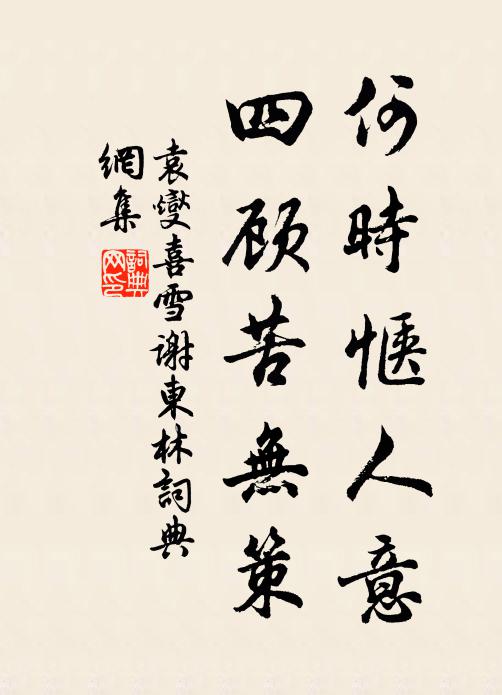 何時惬人意
四顾苦無策
袁燮喜雪谢東林詞典
網集
詞典
网印